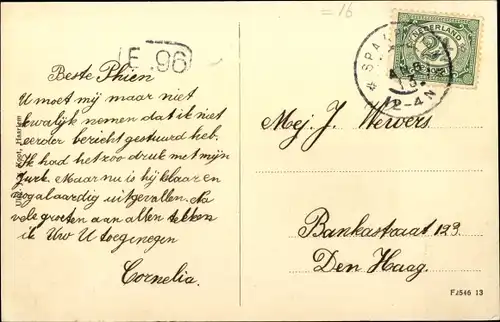 = 16
E.96
Beste Phien
U moet mij maar niet
kwalijk nemen dat ik niet
eerder bericht gestuurd heb.
Ik had het zoo druk met mijn
jurk. Maar nu is hij klaar en
nogal aardig uitgevallen. Na
vele groeten aan allen teeken
ik Uw U toegenegen
Cornelia.
NEDERLAND
2½
SPA
12-4 N
Mej. J. Wewers.
Bankastraat 129.
Den Haag.
Haarlem
FJ546 13